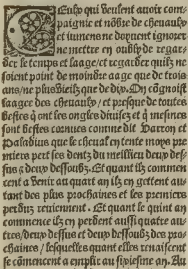 Ceulx qui veulent auoir com
paignie et nõbre de cheuaulx
et iumens ne doyuent ignorer
ne mettre en oubly de regar
der le temps et laage/et regarder quilz ne
soient point de moindre aage que de trois
ans/ne plus vieilz que de dix. On cõgnoist
laage des cheuaulx/ et presque de toutes
bestes q̃ ont les ongles diuisez/et q̃ mesmes
sont bestes cornues comme dit Varron et
Paladius que le cheual en tente moys pre
miers pert ses dentz du meillieu deux des
sus & deux dessoubz. Et quant ilz commen
cent a venir au quart an ilz en gettent au
tant des plus prochaines et les premieres
perdues reuiennent. Et quant le quint an
commence ilz en perdent aussi quatre au
tres/deux dessus et deux dessoubz des pro
chaines/ lesquelles quant elles renaissent
se cõmencent a emplir au sixiesme an. Au